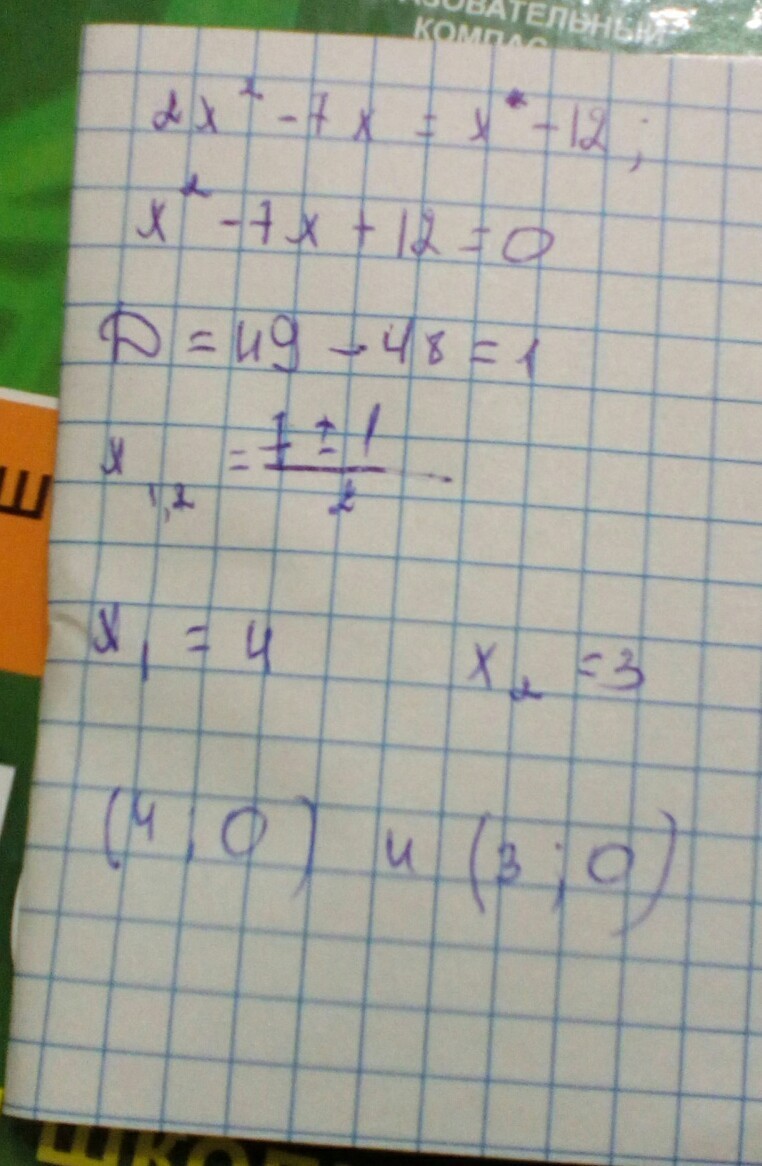 АЗОВАТЕЛЬНЫЙ
КОМПАС
2x² - 7x = x² - 12;
x² - 7x + 12 = 0
D = 49 - 48 = 1
x₁,₂ = (7 ± 1)/2
Ш
x₁ = 4 x₂ = 3
(4; 0) и (3; 0)
ШКОЛ